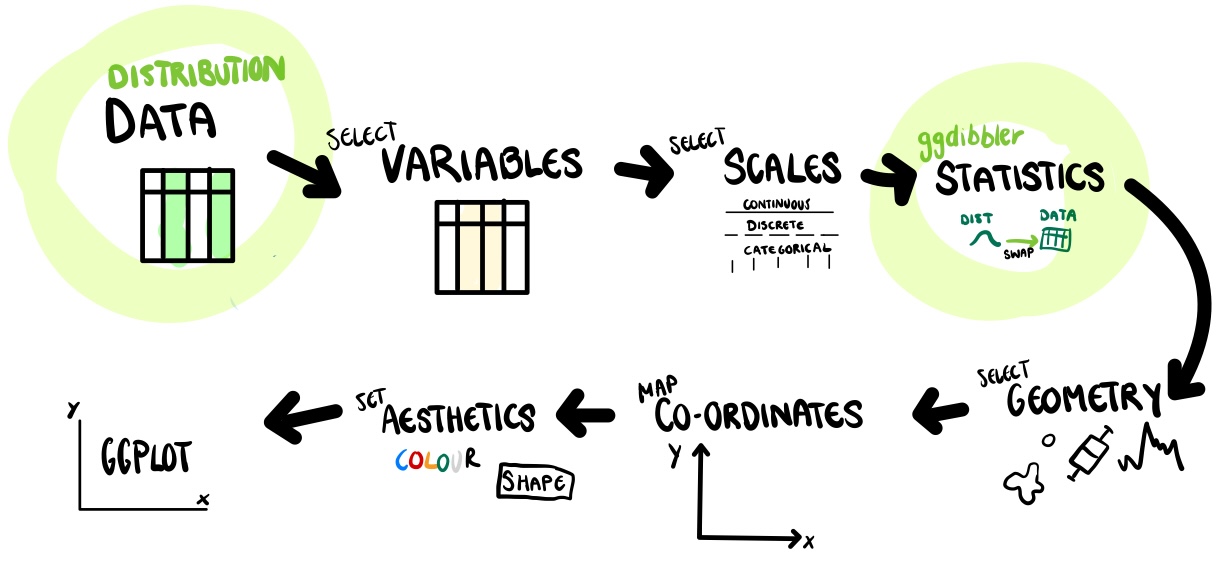 DISTRIBUTION
DATA
SELECT
VARIABLES
SELECT
SCALES
CONTINUOUS
DISCRETE
CATEGORICAL
ggdibbler
STATISTICS
DIST
DATA
SWAP
SELECT
GEOMETRY
MAP
CO-ORDINATES
Y
X
SET
AESTHETICS
COLOUR
SHAPE
Y
GGPLOT
X